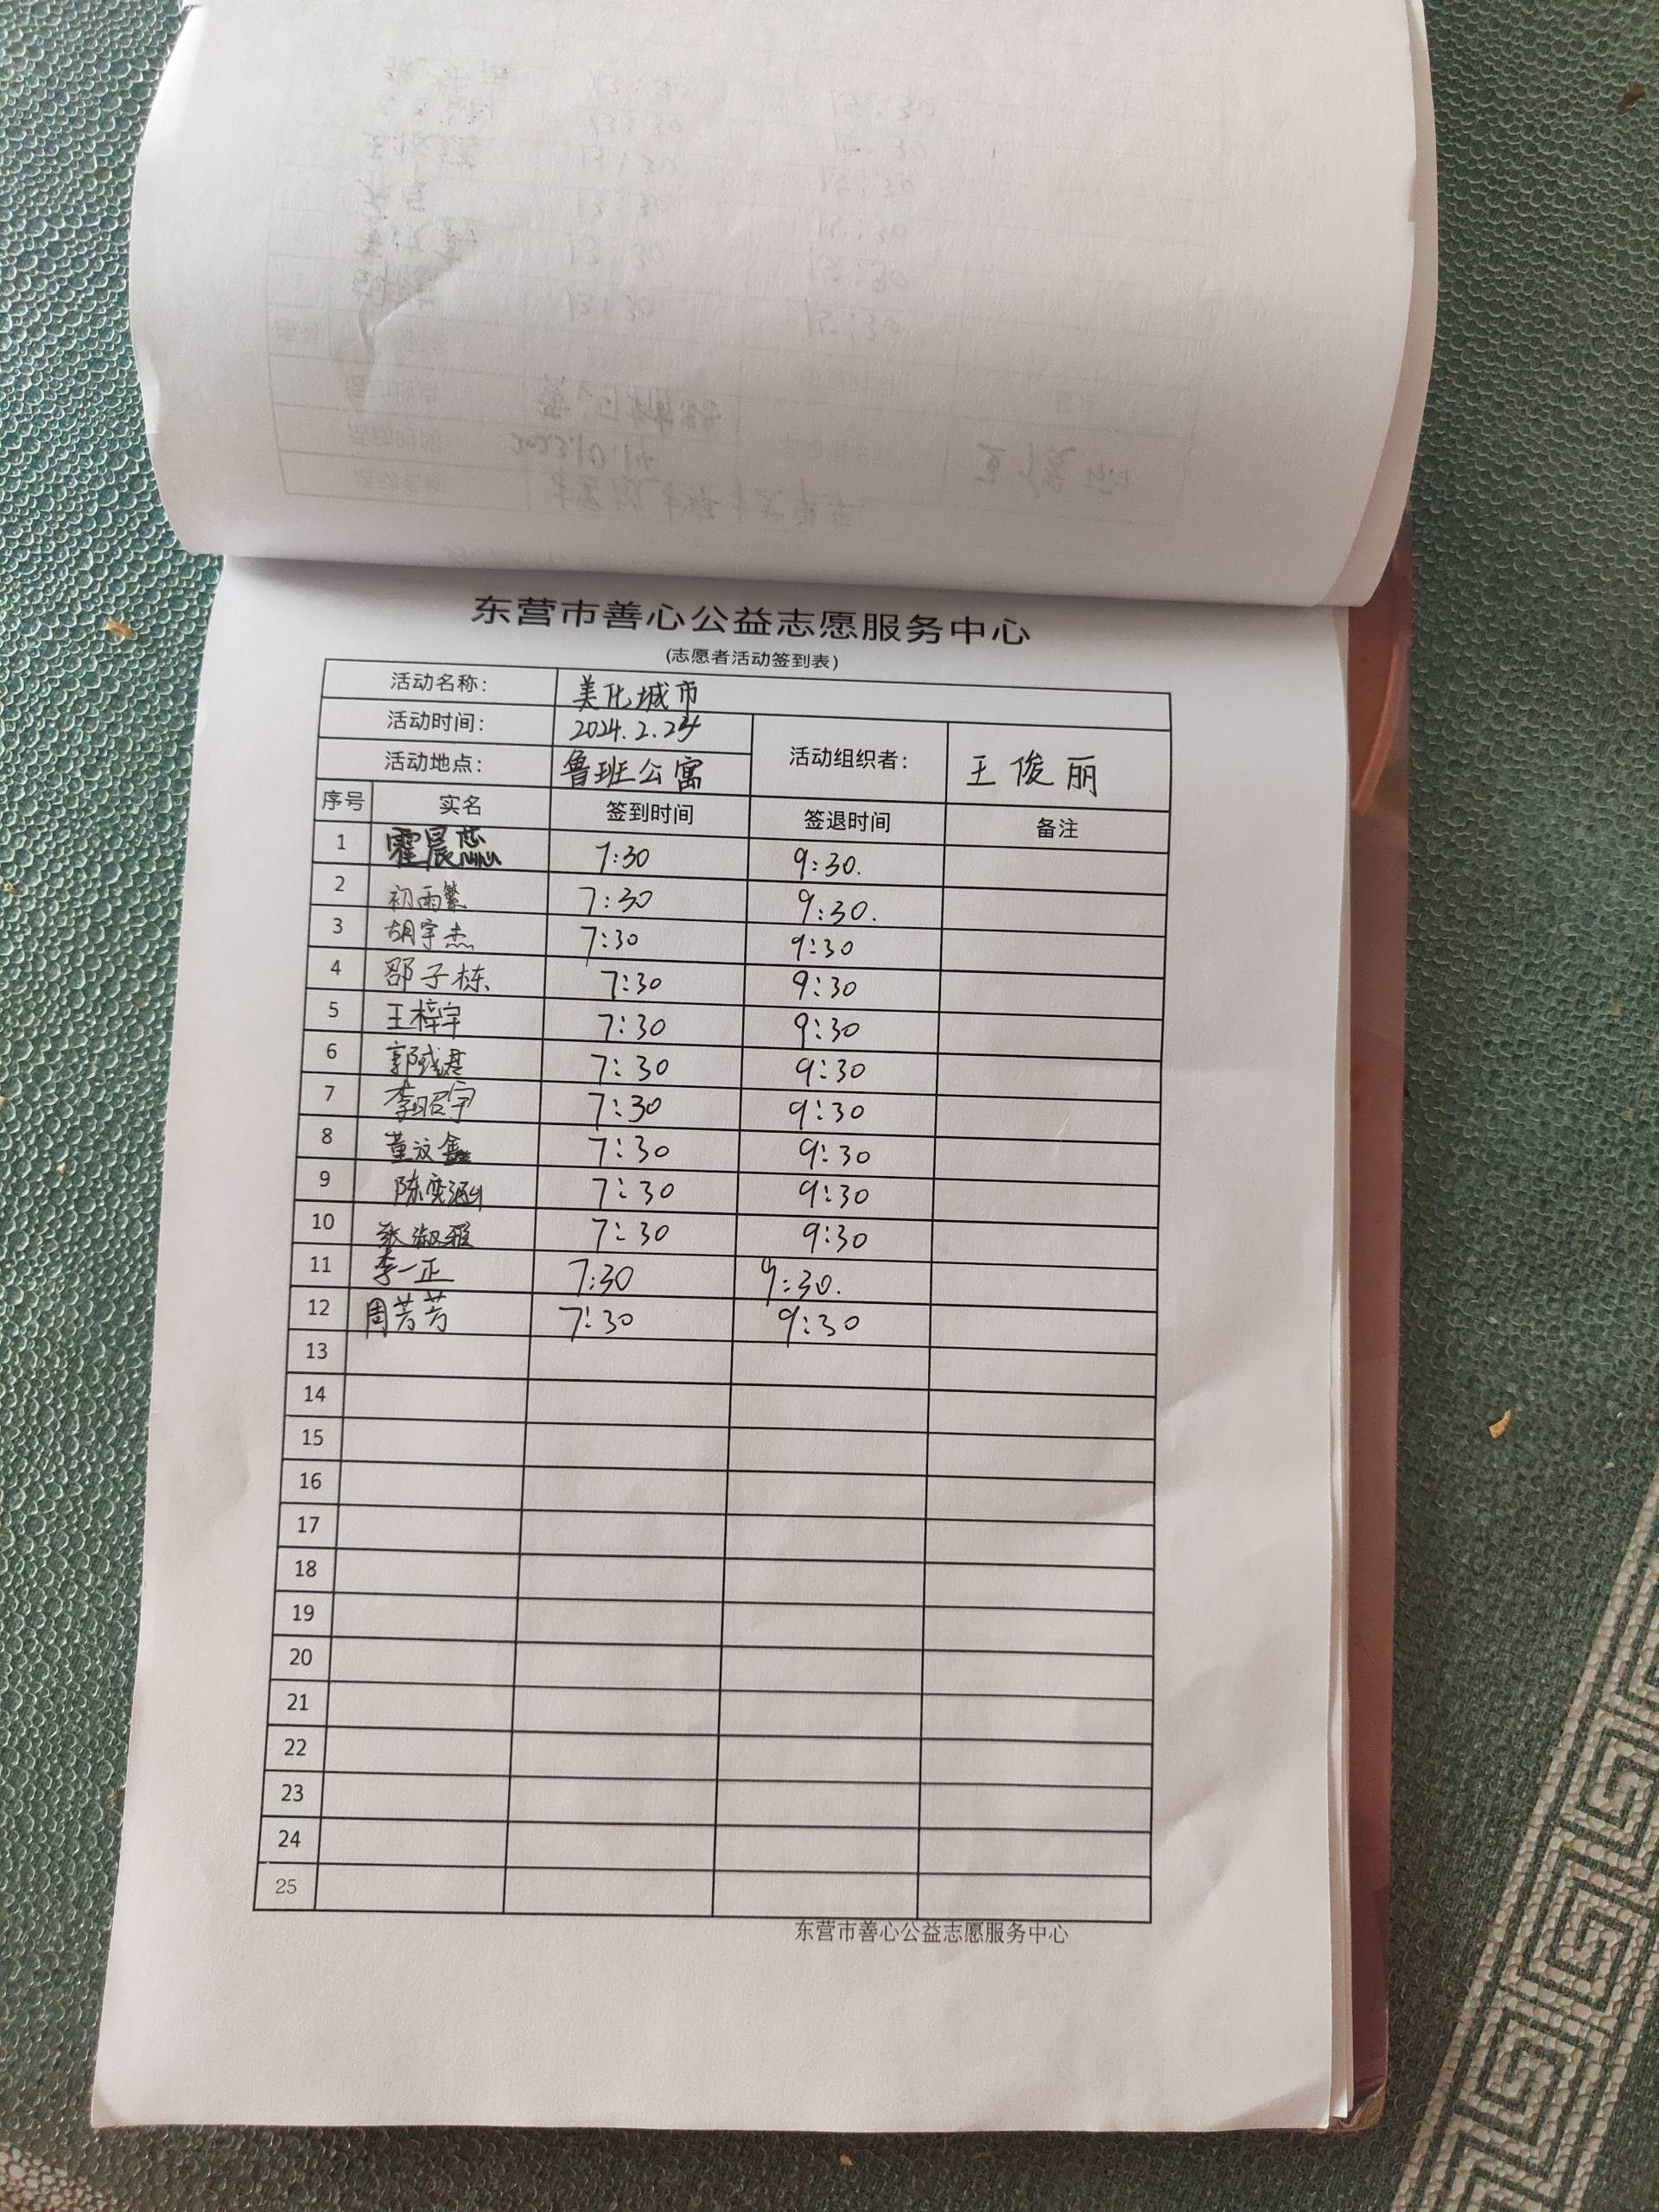 东营市善心公益志愿服务中心
(志愿者活动签到表)
活动名称: 美化城市
活动时间: 2024.2.24
活动地点: 鲁班公寓 活动组织者: 王俊丽
序号 实名 签到时间 签退时间 备注
1 霍晨 7:30 9:30.
2 初雨繁 7:30 9:30.
3 胡宇杰 7:30 9:30
4 邵子栋 7:30 9:30
5 王梓宇 7:30 9:30
6 郭 7:30 9:30
7 李昭宇 7:30 9:30
8 董汶鑫 7:30 9:30
9 陈奕涵 7:30 9:30
10 张淑雅 7:30 9:30
11 李一正 7:30 9:30.
12 周芳芳 7:30 9:30
13
14
15
16
17
18
19
20
21
22
23
24
25
东营市善心公益志愿服务中心